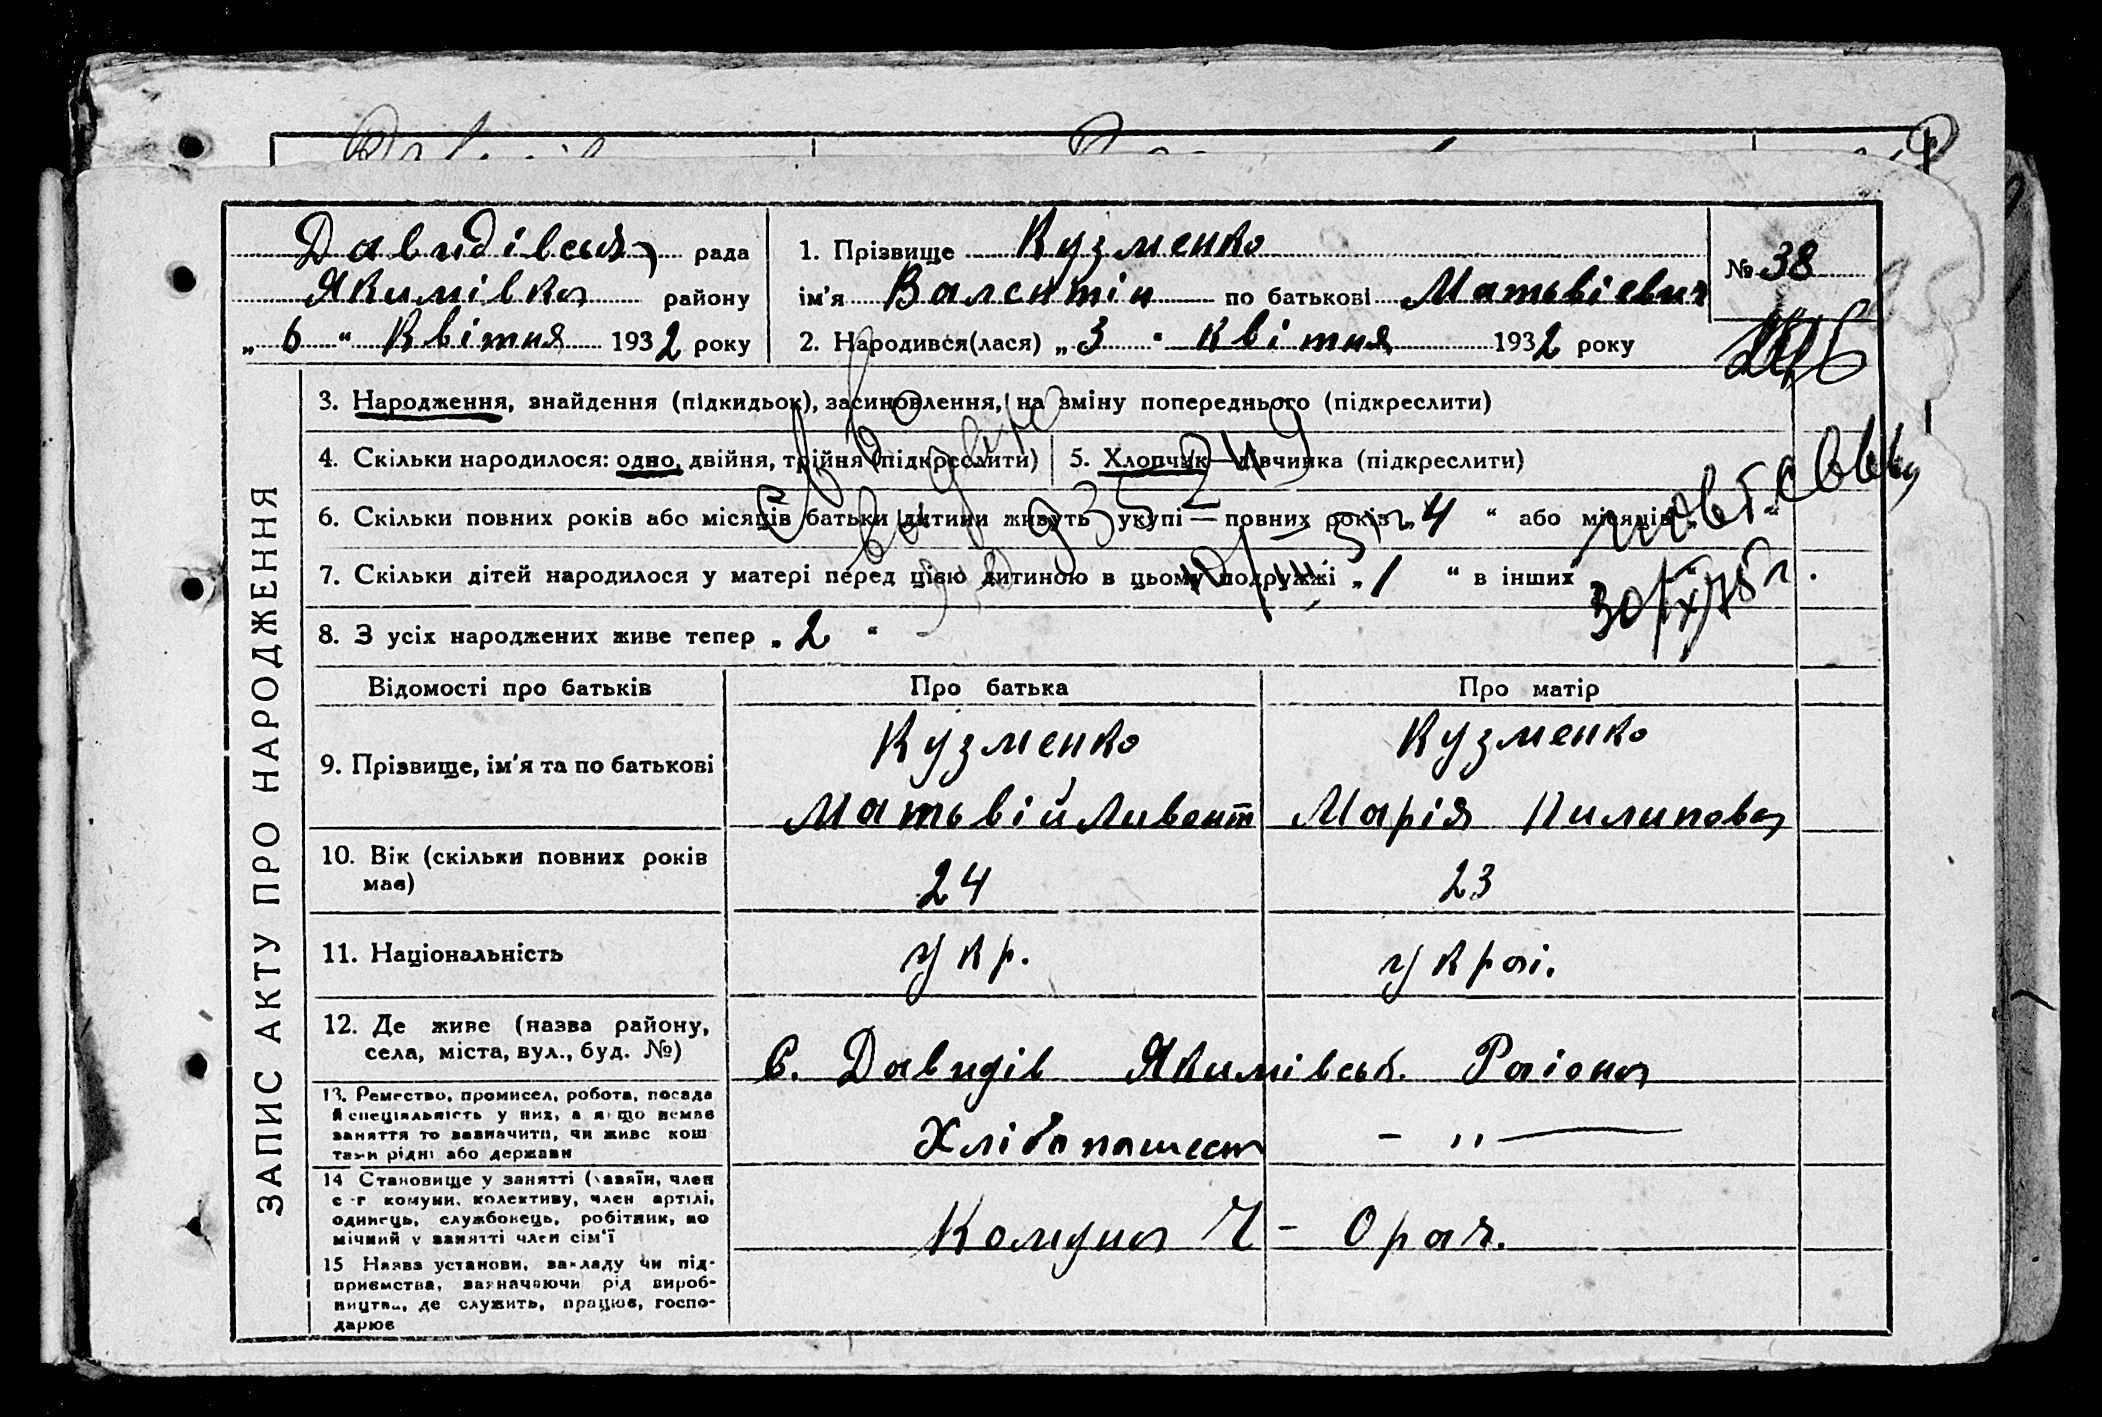 Давидівська рада
Якимівка району
„ 6 “ Квітня 1932 року
1. Прізвище Кузменко
ім'я Валентін по батькові Матьвієвич
2. Народився(лася) „ 3 “ Квітня 1932 року
№ 38
3. Народження, знайдення (підкидьок), засиновлення, на зміну попереднього (підкреслити)
4. Скільки народилося: одно, двійня, трійня (підкреслити)
5. Хлопчик—дівчинка (підкреслити)
6. Скільки повних років або місяців батьки дитини живуть укупі — повних років „ 4 “ або місяців
7. Скільки дітей народилося у матері перед цією дитиною в цьому подружжі „ 1 “ в інших
30/IX/75 г.
8. З усіх народжених живе тепер „ 2 “
ЗАПИС АКТУ ПРО НАРОДЖЕННЯ
Відомості про батьків Про батька Про матір
9. Прізвище, ім'я та по батькові
Кузменко
Матьвій
Кузменко
Марія Пилиповна
10. Вік (скільки повних років має)
24
23
11. Національність
укр.
украї.
12. Де живе (назва району,
села, міста, вул., буд. №)
С. Давидів Якимівськ. Раіона
13. Ремество, промисел, робота, посада
й спеціяльність у них, а якщо немає
заняття то зазначити, чи живе кош
тами рідні або держави
Хлібопашест
— „ —
14 Становище у занятті (хазяїн, член
с-г комуни, колективу, член артілі,
одинець, службовець, робітник, по
мічний у занятті член сім'ї
15 Назва установи, закладу чи під-
приємства, зазначаючи рід вироб-
ництва, де служить, працює, госпо-
дарює